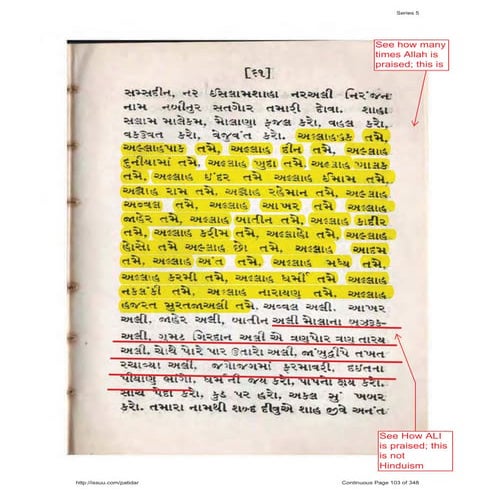 Series 5
See how many
times Allah is
praised; this is
[૬૧]
સમ્સદીન, નર ઇસલામશાહા નરઅલી નિરંજન
નામ નબીનુર સતગોર તમારી દોવા. શાહા
સલામ માલેકમ, મોલાણા ફજલ કરો, વહલ કરો,
કરો, કરો. અલ્લાહહક તમે,
અલ્લાહપાક તમે, અલ્લાહ દીન તમે, અલ્લાહ
દુનીયામાં તમે, અલ્લાહ ખુદા તમે, અલ્લાહ ખાલક
તમે, અલ્લાહ ઇંદર તમે અલ્લાહ ઈમામ તમે,
અલ્લાહ રામ તમે, અલ્લાહ રહેમાન તમે, અલ્લાહ
અવ્વલ તમે, અલ્લાહ આખર તમે અલ્લાહ
જાહેર તમે, અલ્લાહ બાતીન તમે, અલ્લાહ કાદીર
તમે, અલ્લાહ કરીમ તમે, અલ્લાહ તમે, અલ્લાહ
તમે અલ્લાહ છો તમે, અલ્લાહ આદમ
તમે, અલ્લાહ અંત તમે, અલ્લાહ મધ્ય તમે,
અલ્લાહ કરમી તમે, અલ્લાહ ધર્મી તમે અલ્લાહ
નકલંકી તમે, અલ્લાહ નારાયણ તમે, અલ્લાહ
હજરત સુરતજાઅલી તમે. અવ્વલ અલી. આખર
અલી, જાહેર અલી, બાતીન અલી મોલાના
અલી, ગમટ ગિરદાન અલી એ ત્રણપોર ત્રણ તારય
અલી. ચોથે પોરે પાર ઉતારો અલી, જાંબુદીપે તખત
રચાવ્યા અલી, જગાજગમાં ફરમાવરી, દઈતના
પીયાણુ ભાંગો. ધર્મની જય કરો, પાપનો ક્ષય કરો.
સાચ પેદા કરો, કુડ પર હરો, અકલ સું ખબર
કરો. તમારા નામથી શબ્દ દીવુએ શાહ જીવે અનંત
See How ALI
is praised; this
is not
Hinduism
http://issuu.com/patidar
Continuous Page 103 of 348